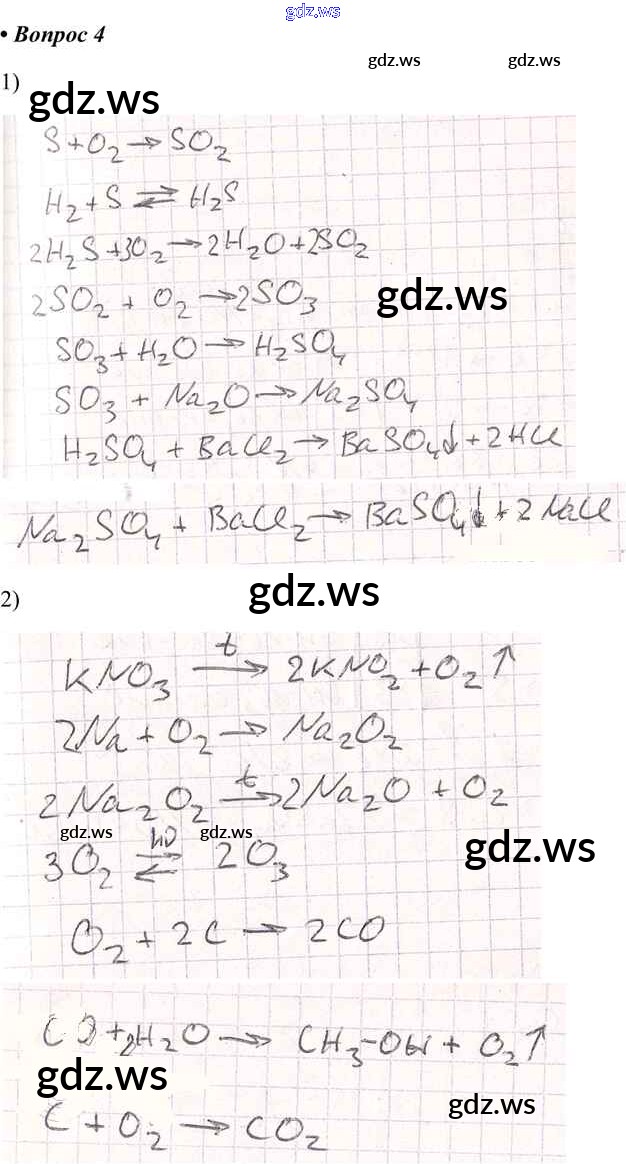 gdz.ws
• Вопрос 4
gdz.ws gdz.ws
1)
gdz.ws
S + O₂ → SO₂
H₂ + S ⇄ H₂S
2H₂S + 3O₂ → 2H₂O + 2SO₂
2SO₂ + O₂ → 2SO₃
gdz.ws
SO₃ + H₂O → H₂SO₄
SO₃ + Na₂O → Na₂SO₄
H₂SO₄ + BaCl₂ → BaSO₄↓ + 2HCl
Na₂SO₄ + BaCl₂ → BaSO₄↓ + 2NaCl
gdz.ws
2)
KNO₃ —t→ 2KNO₂ + O₂↑
2Na + O₂ → Na₂O₂
2Na₂O₂ —t→ 2Na₂O + O₂
gdz.ws gdz.ws
gdz.ws
3O₂ ⇄ 2O₃
O₂ + 2C → 2CO
CO + 2H₂O → CH₃–OH + O₂↑
gdz.ws
gdz.ws
C + O₂ → CO₂